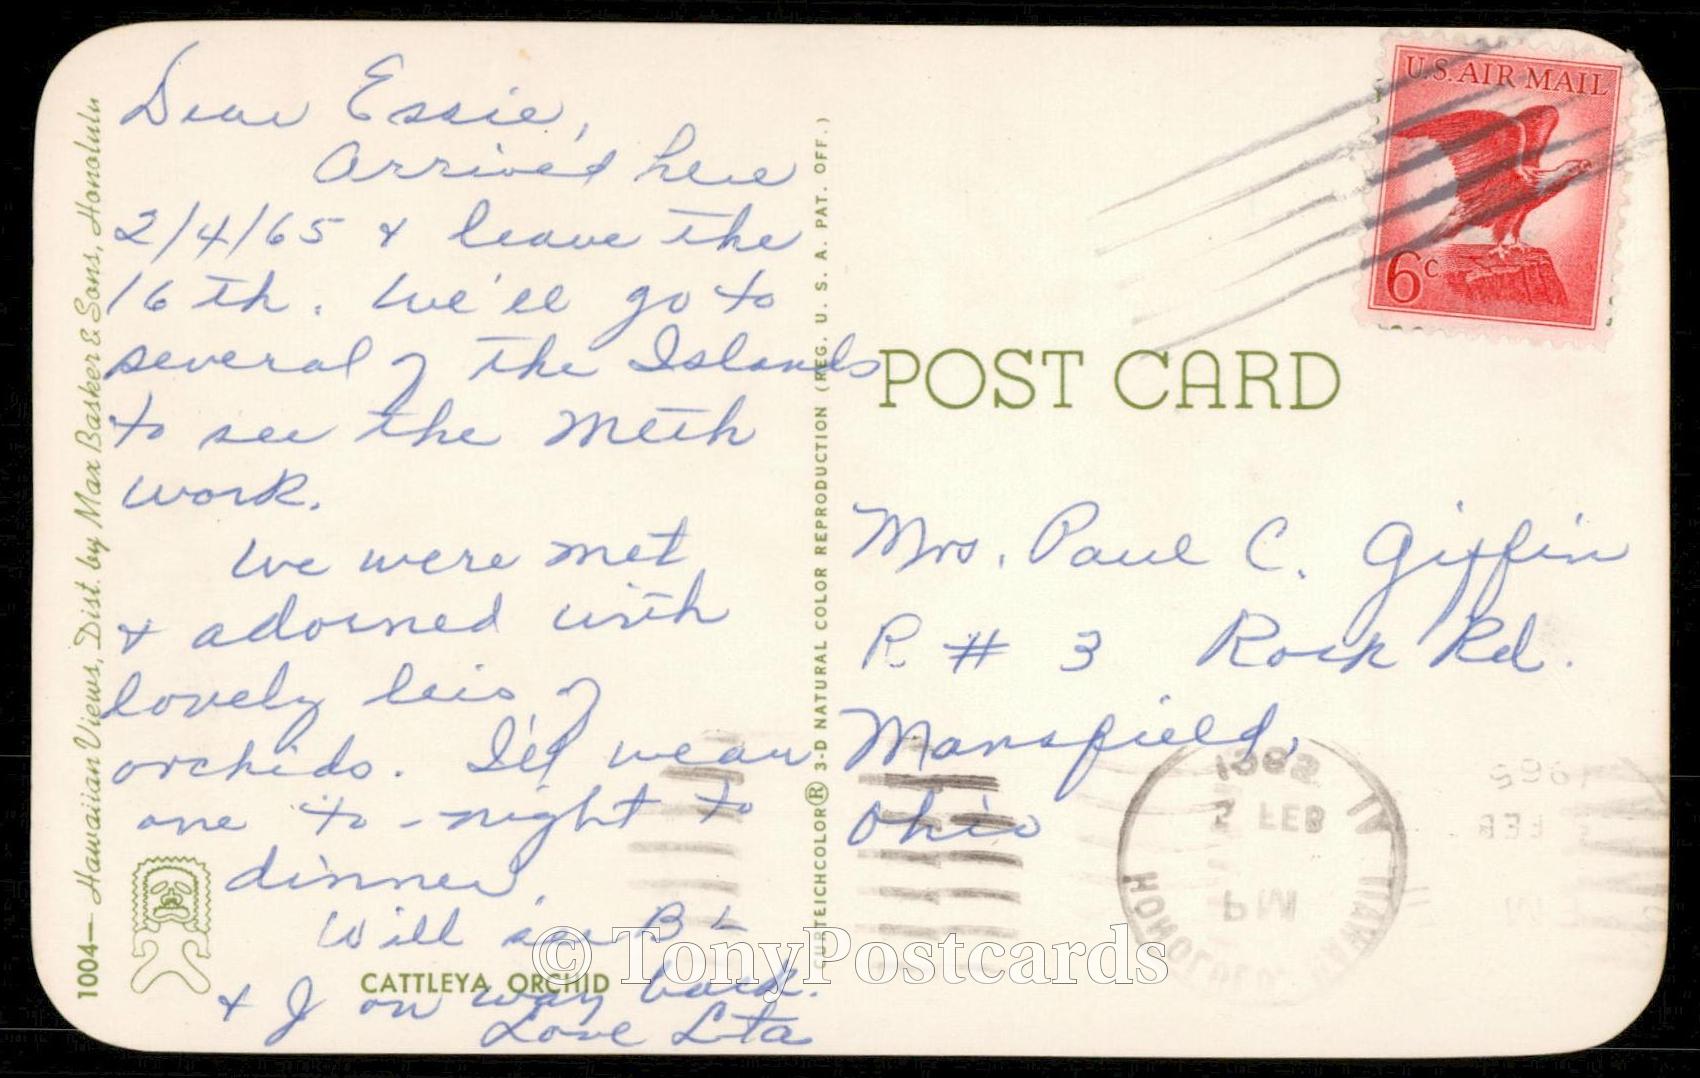 Dear Essie,
Arrived here
2/4/65 & leave the
16th. We'll go to
several of the Islands
to see the Meth
work.
We were met
& adorned with
lovely leis of
orchids. I'll wear
one to-night to
dinner.
Will see B L
& J on way back.
Love Lta
CATTLEYA ORCHID
1004— Hawaiian Views, Dist. by Max Basker & Sons, Honolulu
CURTEICHCOLOR® 3-D NATURAL COLOR REPRODUCTION (REG. U. S. A. PAT. OFF.)
U.S. AIR MAIL
6c
POST CARD
Mrs. Paul C. Giffin
R # 3 Rock Rd.
Mansfield,
Ohio
FEB
PM
HONOLULU HAWAII
© TonyPostcards